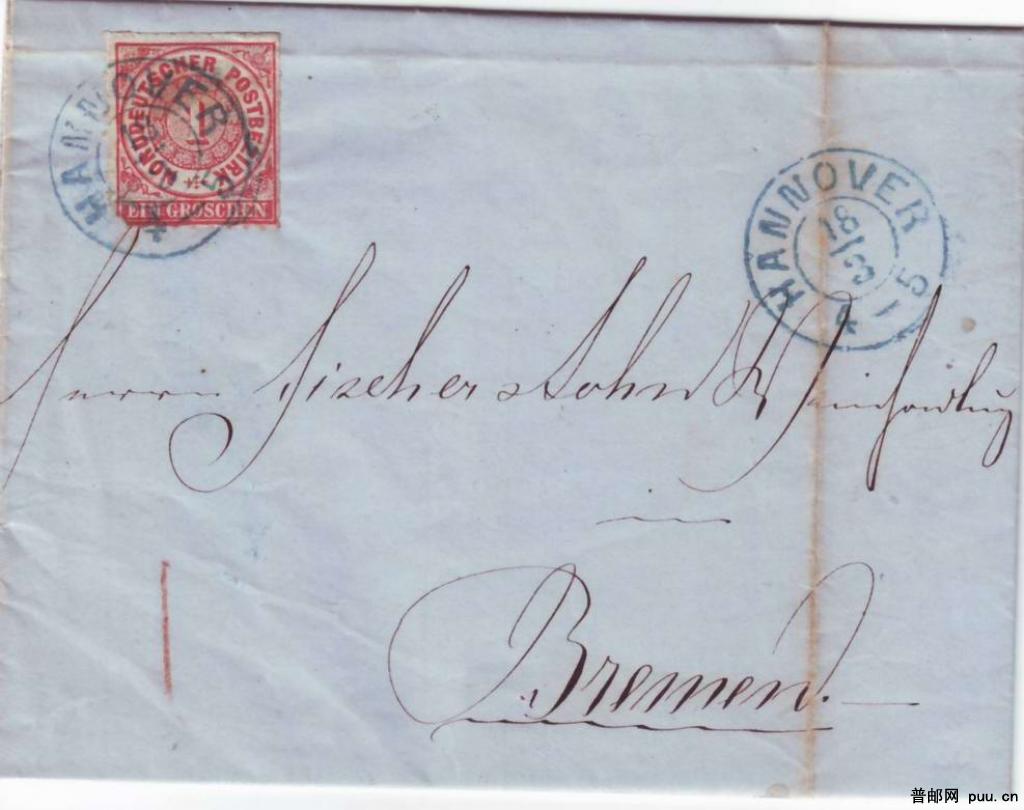 NORDDEUTSCHER POSTBEZIRK
1
EIN GROSCHEN
HANNOVER
HANNOVER
18/3
Herrn Fischer & Sohn
in
Bremen.
普邮网 puu.cn